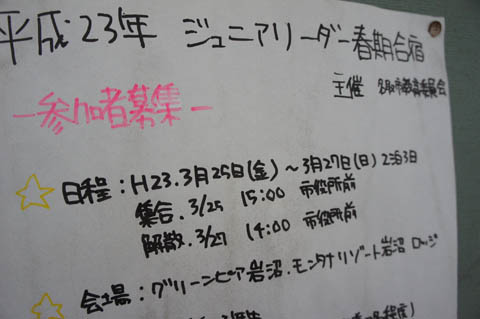 平成23年 ジュニアリーダー春期合宿
主催 名取市教育委員会
－参加者募集－
日程:H23.3月25日(金)～3月27日(日)2泊3日
集合.3/25 15:00 市役所前
解散.3/27 14:00 市役所前
会場:グリーンピア岩沼.モンタナリゾート岩沼 ロッジ
程度)